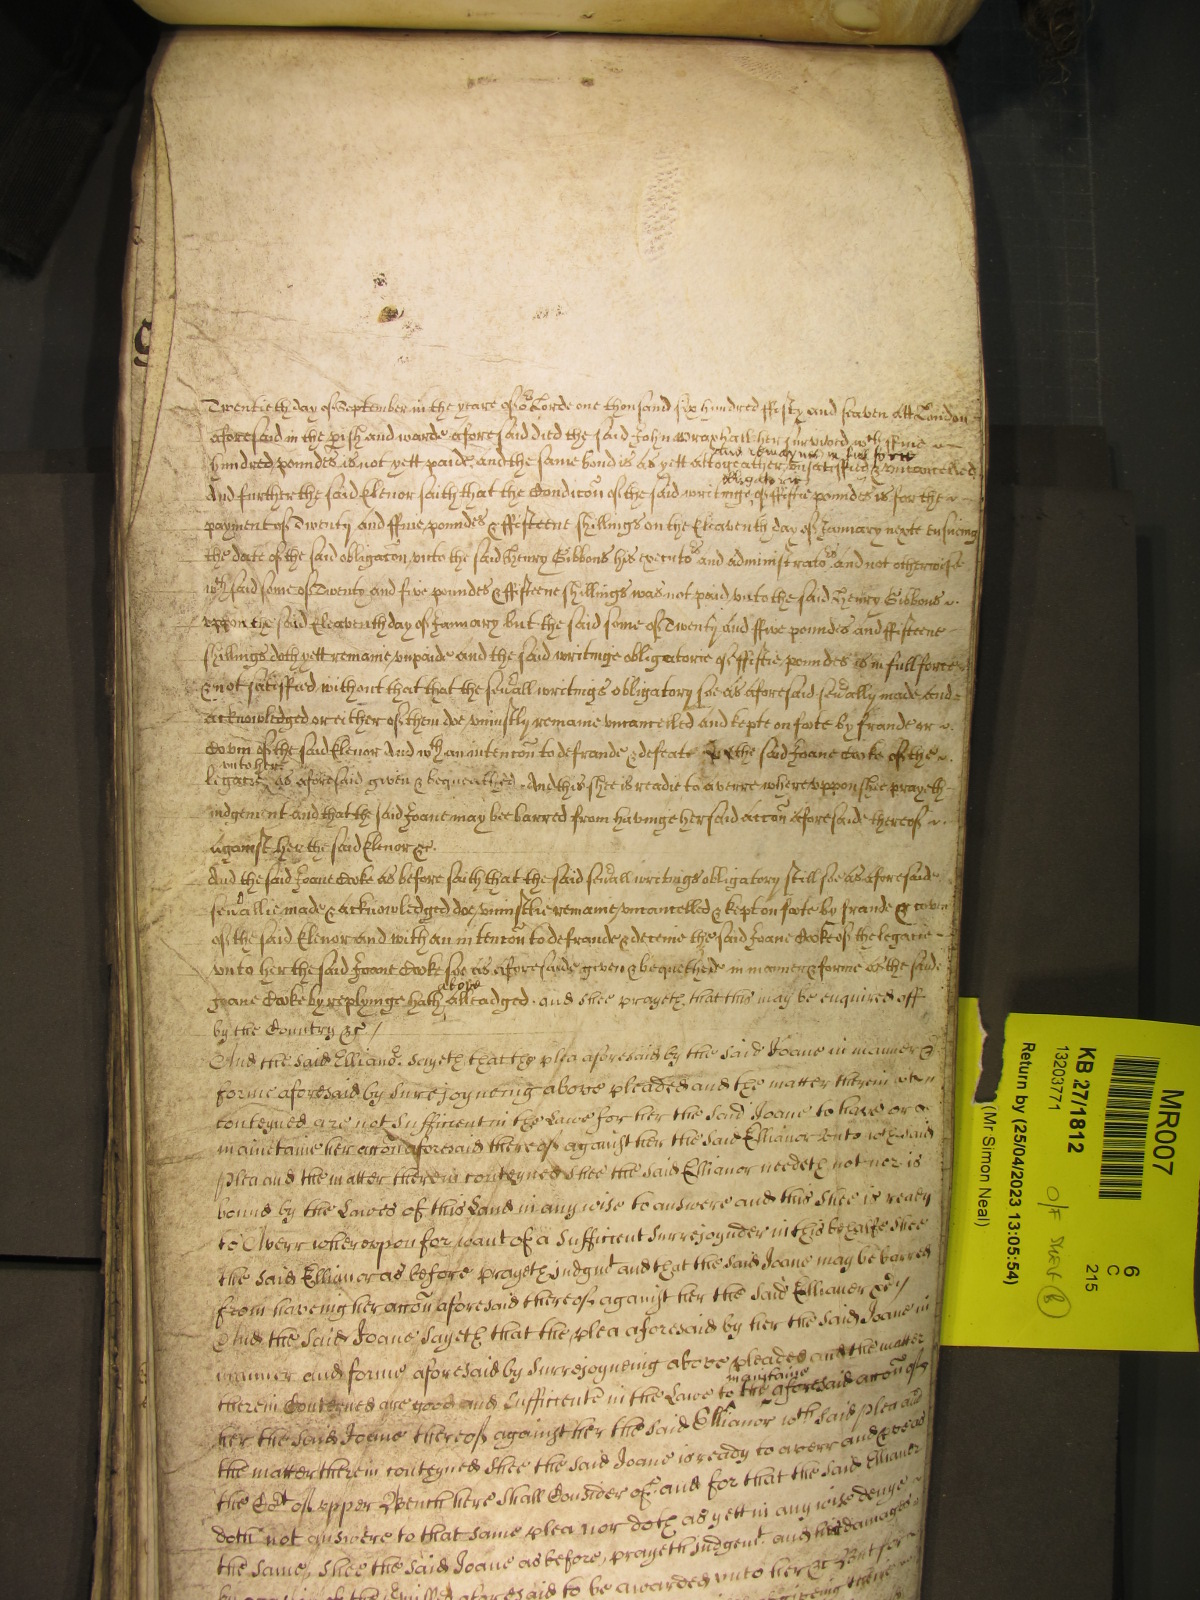 Twentieth day of September in the yeare of or Lorde one thousand six hundred ffifty and seaven att London
aforesaid in the pish and warde aforesaid died the said John Wraphall her survived wch ffive
and remaynes in full force
hundred poundes is not yett paide and the same bond is as yett altogeather unsatisfied & uncancelled
obligatorie
And further the said Elenor saith that the Condicon of the said writinge of ffiftie poundes is for the
payment of Twenty and ffive poundes & ffifteene shillings on the Eleaventh day of January nexte ensuing
the date of the said obligacon unto the said Henry Gibbons his executors and administrators and not otherwise
wch said some of Twenty and five poundes & ffifteene shillings was not paid unto the said Henry Gibbons
uppon the said Eleaventh day of January but the said some of Twenty and ffive poundes and ffifteene
shillings doth yett remaine unpaide and the said writinge obligatorie of ffiftie poundes is in full force
& not satisfied without that that the sevall writings obligatory soe as aforesaid sevally made and
acknowledged or either of them doe uniustly remaine uncancelled and kepte on foote by fraude or
Covin of the said Elenor And wth an intencon to defraude & defeate the said Joane Cooke of the
unto her
legacie as aforesaid given & bequeathed. And this shee is readie to averre whereuppon shee prayeth
iudgement and that the said Joane may bee barred from havinge her said accon aforesaide thereof
against her the said Elenor &c.
And the said Joane Cooke as before saith that the said sevall writings obligatory still soe as aforesaide
sevallie made & acknowledged doe uniustlie remaine uncancelled & kept on foote by fraude & covin
of the said Elenor and with an intencon to defraude & deceive the said Joane Cooke of the legacie
unto her the said Joane Cooke soe as aforesaide given & bequethede in manner & forme as the saide
above
Joane Cooke by replyinge hath alleadged. and shee prayeth that this may be enquired off
by the Country &c /
And the said Ellianor sayeth that the plea aforesaid by the said Joane in manner &
forme aforesaid by Surrejoyneing above pleaded and the matter therein
conteyned are not sufficient in the Lawe for her the said Joane to have or
maintaine her accon aforesaid thereof against her the said Ellianor Unto wch said
plea and the matter therein conteyned shee the said Ellianor needeth not nor is
bound by the Lawes of this Land in any wise to answere and this shee is ready
to Averr whereupon for want of a sufficient Surrejoynder in this behalfe shee
the said Ellianor as before prayeth judgmt and that the said Joane may be barred
from haveing her accon aforesaid thereof against her the said Ellianor &c /
And the said Joane sayeth that the plea aforesaid by her the said Joane in
manner and forme aforesaid by Surrejoyneing above pleaded and the matter
mayntaine
therein Conteyned are good and sufficiente in the Lawe to the aforesaid accon of
her the said Joane thereof against her the said Ellianor wch said plea and
the matter therein conteyned shee the said Joane is ready to averr and prove as
the Cort of upper Bench here shall Consider of and for that the said Ellianor
doth not answere to that same plea nor doth as yett in any wise denye
the same, shee the said Joane as before, prayeth judgent. and her damages
aforesaid to be awarded unto her &c But for
MR007
KB 27/1812
13203771
Return by (25/04/2023 13:05:54)
(Mr Simon Neal)
6
C
215
O/F